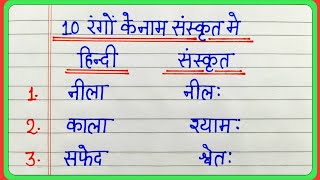 10 रंगों के नाम संस्कृत मे
हिन्दी संस्कृत
1. नीला नीलः
2. काला श्यामः
3. सफेद श्वेतः